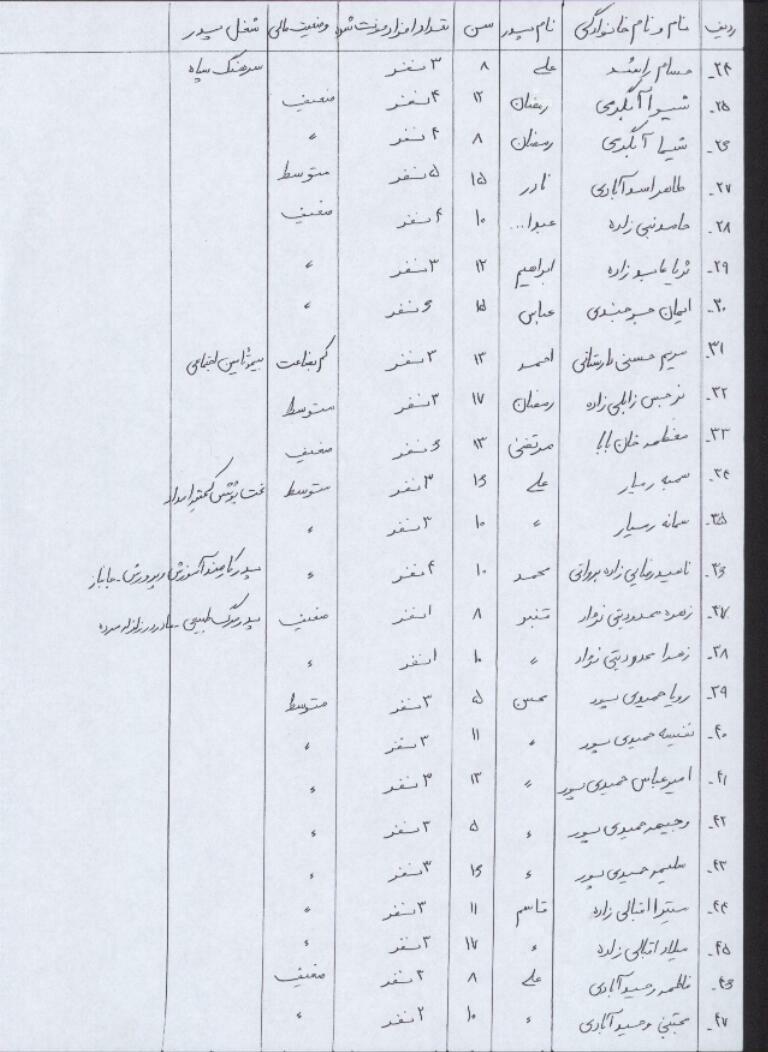 ردیف نام و نام خانوادگی نام پدر سن تعداد افراد فوت شده وضعیت مالی شغل پدر
۲۴- حسام راشد علی ۸ ۳ نفر سرهنگ سپاه
۲۵- شیوا آبگری رمضان ۱۲ ۴ نفر ضعیف
۲۶- شیما آبگری رمضان ۸ ۴ نفر ″
۲۷- طاهر اسدآبادی نادر ۱۵ ۵ نفر متوسط
۲۸- حامد نبی زاده عبدا... ۱۰ ۴ نفر ضعیف
۲۹- ثریا زاده ابراهیم ۱۲ ۳ نفر ″
۳۰- ایمان عباس ۱۵ ۶ نفر ″
۳۱- مریم حسنی احمد ۱۳ ۳ نفر کم بضاعت بیمه تامین اجتماعی
۳۲- نرجس زابلی زاده رمضان ۱۷ ۳ نفر متوسط
۳۳- معظمه خان بابا مرتضی ۱۳ ۶ نفر ضعیف
۳۴- سمیه علی ۱۶ ۳ نفر متوسط تحت پوشش کمیته امداد
۳۵- سمانه ″ ۱۰ ۳ نفر ″
۳۶- ناهید رضایی زاده محمد ۱۰ ۴ نفر ″ پدر کارمند آموزش و پرورش - جانباز
۳۷- زهره محدودیتی نژاد قنبر ۸ ۱ نفر ضعیف پدر مرگ طبیعی - مادر در زلزله مرده
۳۸- زهرا محدودیتی نژاد ″ ۱۰ ۱ نفر ″
۳۹- رویا حمیدی پور محسن ۵ ۳ نفر متوسط
۴۰- نفیسه حمیدی پور ″ ۱۱ ۳ نفر ″
۴۱- امیرعباس حمیدی پور ″ ۱۳ ۳ نفر ″
۴۲- وجیهه حمیدی پور ″ ۵ ۳ نفر ″
۴۳- سلیمه حمیدی پور ″ ۱۶ ۳ نفر ″
۴۴- میترا اقبالی زاده قاسم ۱۱ ۳ نفر ″
۴۵- میلاد اقبالی زاده ″ ۱۷ ۳ نفر ″
۴۶- فاطمه وحیدآبادی علی ۸ ۲ نفر ضعیف
۴۷- مجتبی وحیدآبادی ″ ۱۰ ۲ نفر ″